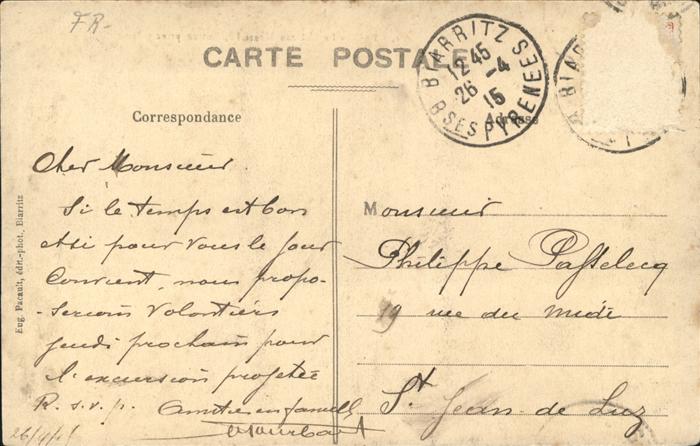 FR-
CARTE POSTALE
BIARRITZ
12 45
26 -4
15
BSES PYRENEES
BIAR
Correspondance
Adresse
Cher Monsieur
Si le temps est bon
et si pour vous le jour
convient, nous propo-
-serions volontiers
jeudi prochain pour
l'excursion projetée
R. s. v. p.
26/4/15
Monsieur
Philippe Passelecq
19 rue du Midi
St Jean de Luz
Eug. Pacault, édit.-phot., Biarritz